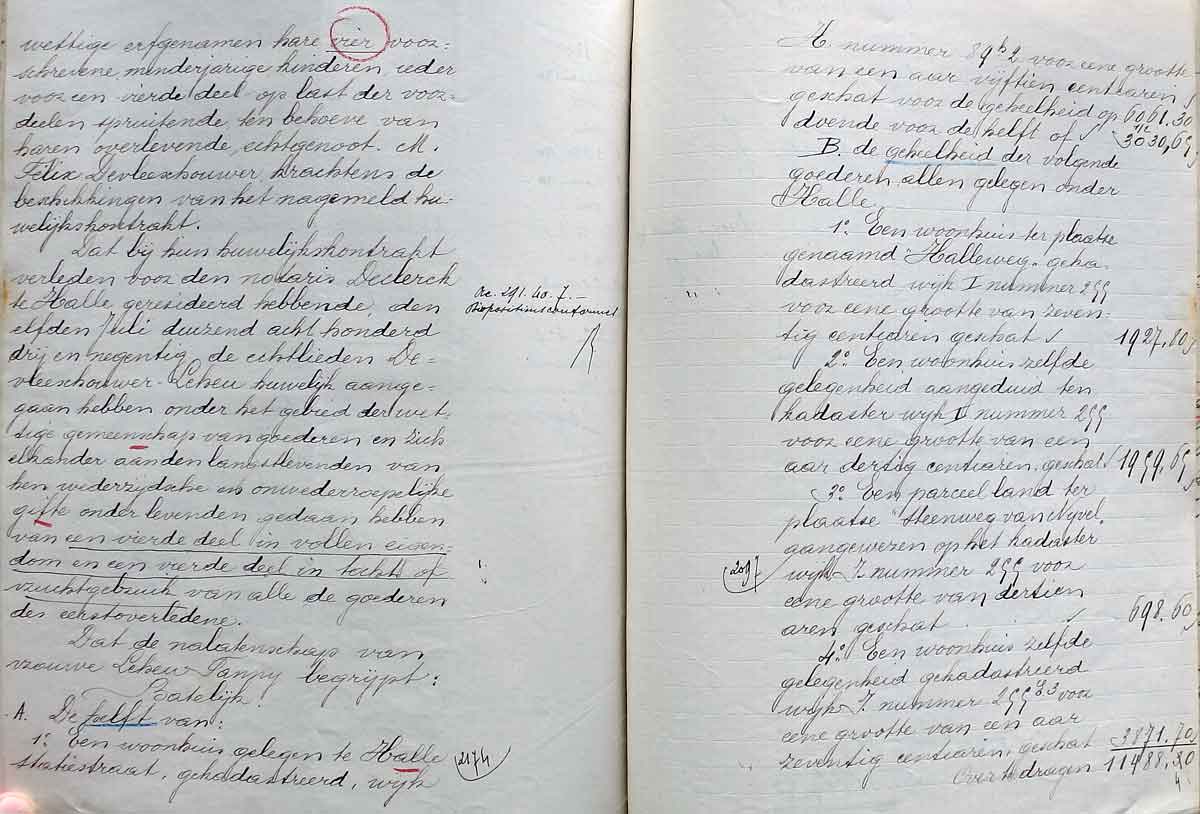 wettige erfgenamen hare vier voor=
schrevene minderjarige kinderen, ieder
voor een vierde deel op last der voor=
deelen spruitende, ten behoeve van
haren overlevende, echtgenoot. M.
Félix Devleeschouwer, krachtens de
beschikkingen van het nagemeld hu=
welijkskontrakt.
Dat bij hun huwelijkskontrakt
verleden voor den notaris Declerck
te Halle, geresideerd hebbende, den
elfden Juli duizend acht honderd
drij en negentig de echtlieden De=
vleeschouwer-Lekeu huwelijk aange=
gaan hebben onder het gebied der wet=
tige gemeenschap van goederen en zich
elkander aan den langstlevenden van
hen wederzijdsche en onwederroepelijke
gifte onder levenden gedaan hebben
van een vierde deel in vollen eigen=
dom en een vierde deel in tocht of
vruchtgebruik van alle de goederen
des eerstoverledene.
Dat de nalatenschap van
vrouwe Lekeu Fanny begrijpt:
Batelijk.
A. De helft van:
1º Een woonhuis gelegen te Halle
statiestraat, gekadastreerd, wijk
Rec. 291.40.7.-
2174
H. nummer 89 h 2 voor eene grootte
van een aar vijftien centiaren
geschat voor de geheelheid op 6061.30
doende voor de helft of 3030,65
B. de geheelheid der volgende
goederen, allen gelegen onder
Halle.
1º Een woonhuis ter plaatse
genaamd "Halleweg" geka=
dastreerd wijk I nummer 299
voor eene grootte van zeven=
tig centiaren geschat 1927.80
2º Een woonhuis zelfde
gelegenheid aangeduid ten
kadaster wijk I nummer 299
voor eene grootte van een
aar dertig centiaren, geschat 1959,65
3º Een parceel land ter
plaatse "Steenweg van Nyvel"
aangewezen op het kadaster
209
wijk I. nummer 299 voor
eene grootte van dertien
aren geschat 698.60
4º Een woonhuis zelfde
gelegenheid gekadastreerd
wijk I. nummer 299 voor
eene grootte van een aar
zeventig centiaren, geschat 3871.70
Over te dragen 11488,30